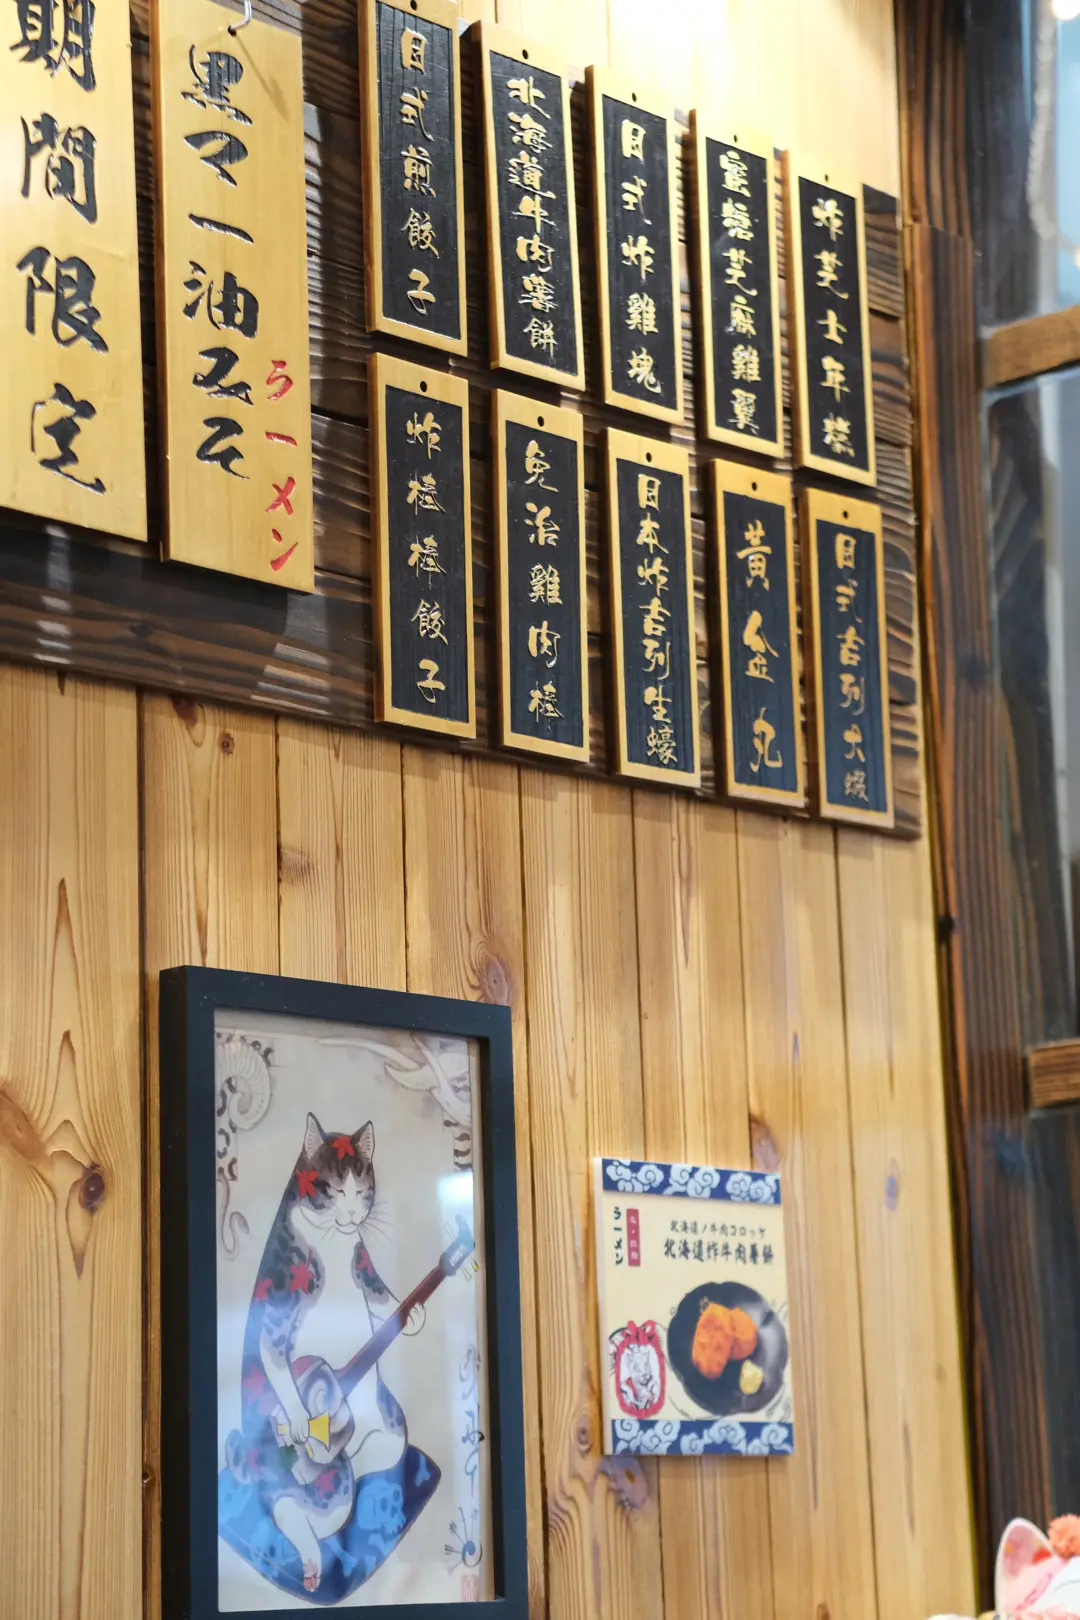 期間限定
黒マー油みそ
ラーメン
日式煎餃子
北海道牛肉薯餅
日式炸雞塊
蜜糖芝麻雞翼
炸芝士年糕
炸棒棒餃子
免治雞肉棒
日本炸吉列生蠔
黃金丸
日式吉列大蝦
ラーメン
北海道ノ牛肉コロッケ
北海道炸牛肉薯餅